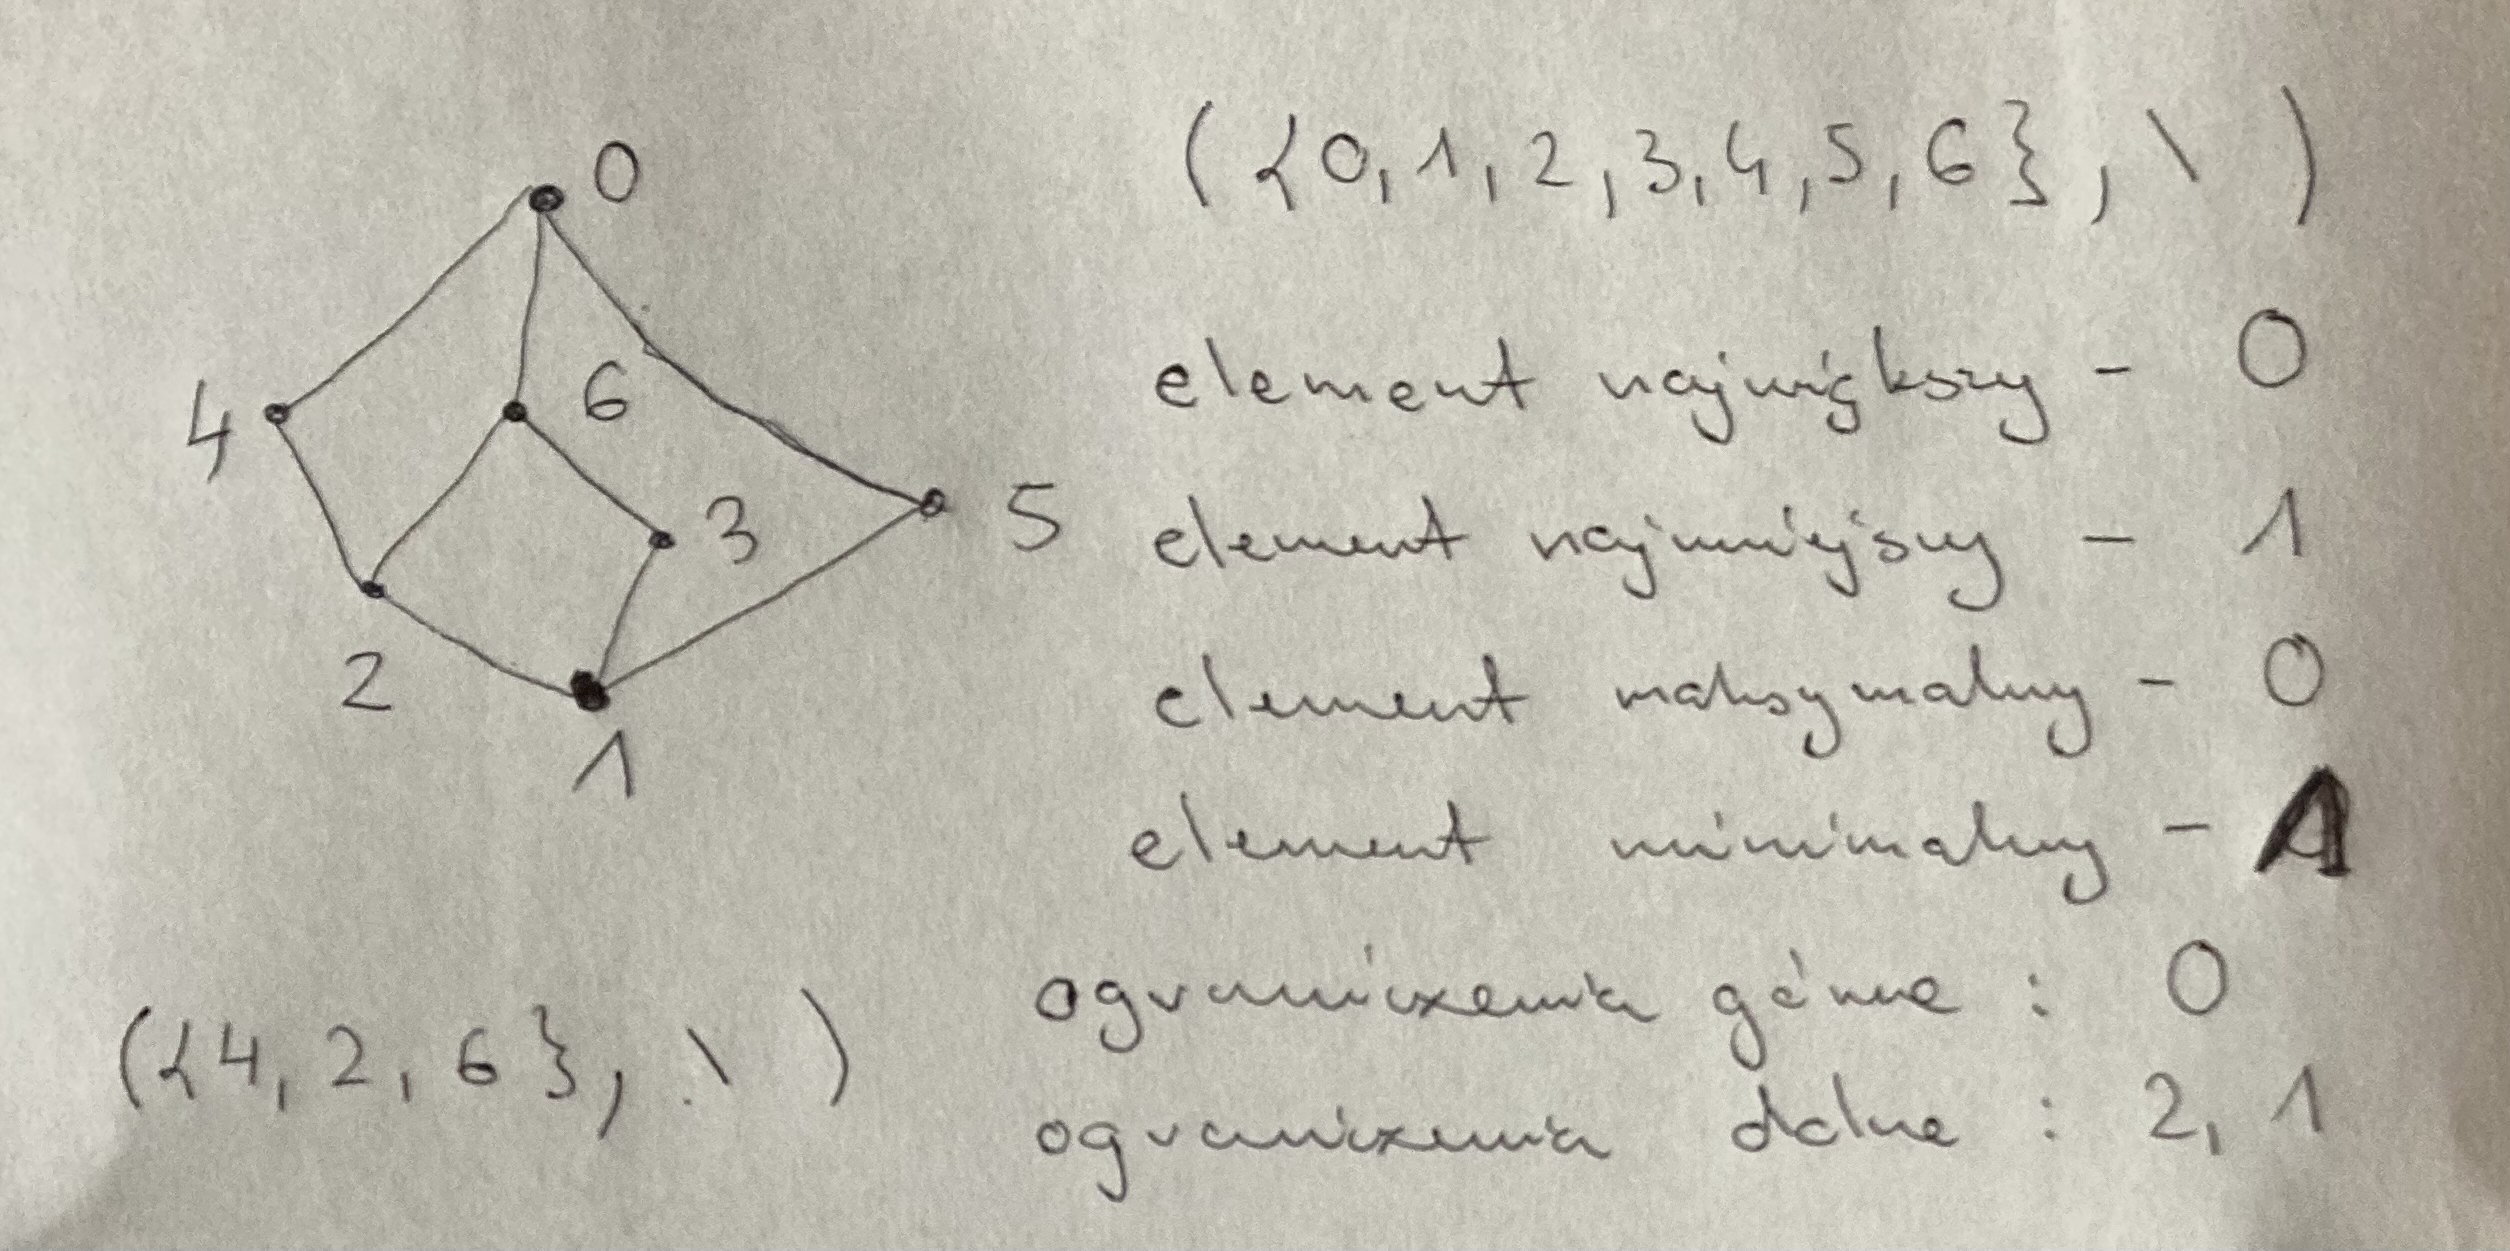 0
4
6
3
5
2
1
({0,1,2,3,4,5,6}, \ )
element największy - 0
element najmniejszy - 1
element maksymalny - 0
element minimalny - 1
({4, 2, 6}, \ )
ograniczenia górne : 0
ograniczenia dolne : 2, 1